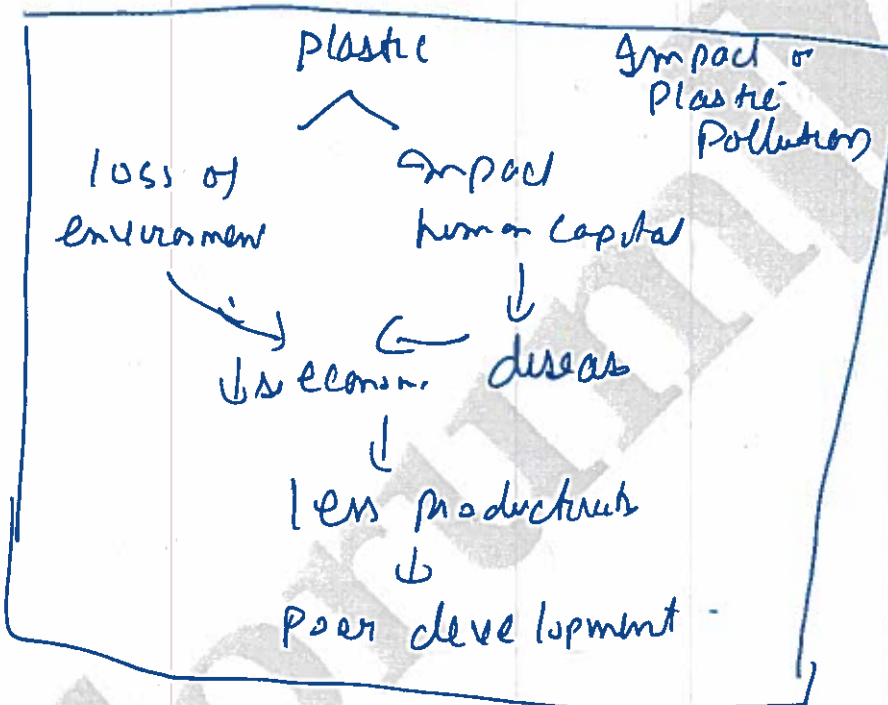 plastic
Impact o
Plastic
Pollution
loss of
environmen
Impact
human capital
diseas
↓s econom.
less productivity
↓
poor development